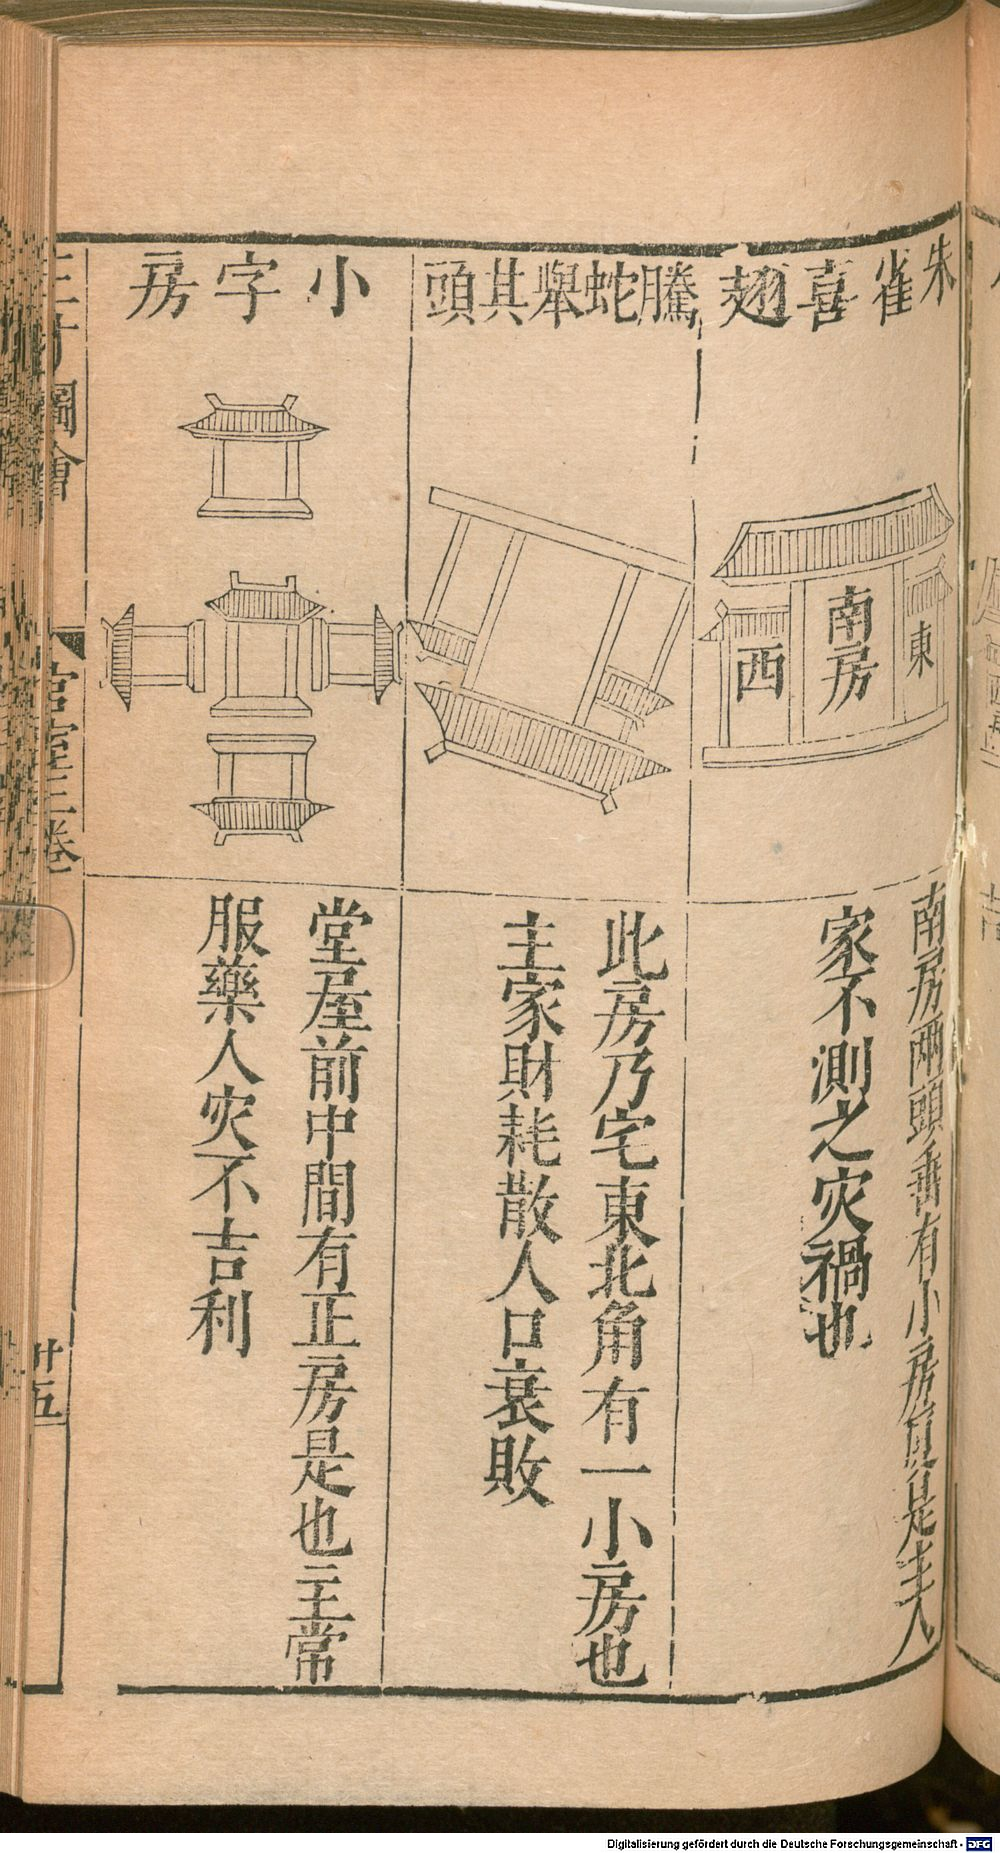 朱雀喜翅
南房
東
西
南房兩頭垂有小房真是主人
家不測之灾禍也
騰蛇舉其頭
此房乃宅東北角有一小房也
主家財耗散人口衰敗
小字房
堂屋前中間有正房是也主常
服藥人灾不吉利
宮室三卷
卄五
Digitalisierung gefördert durch die Deutsche Forschungsgemeinschaft - DFG